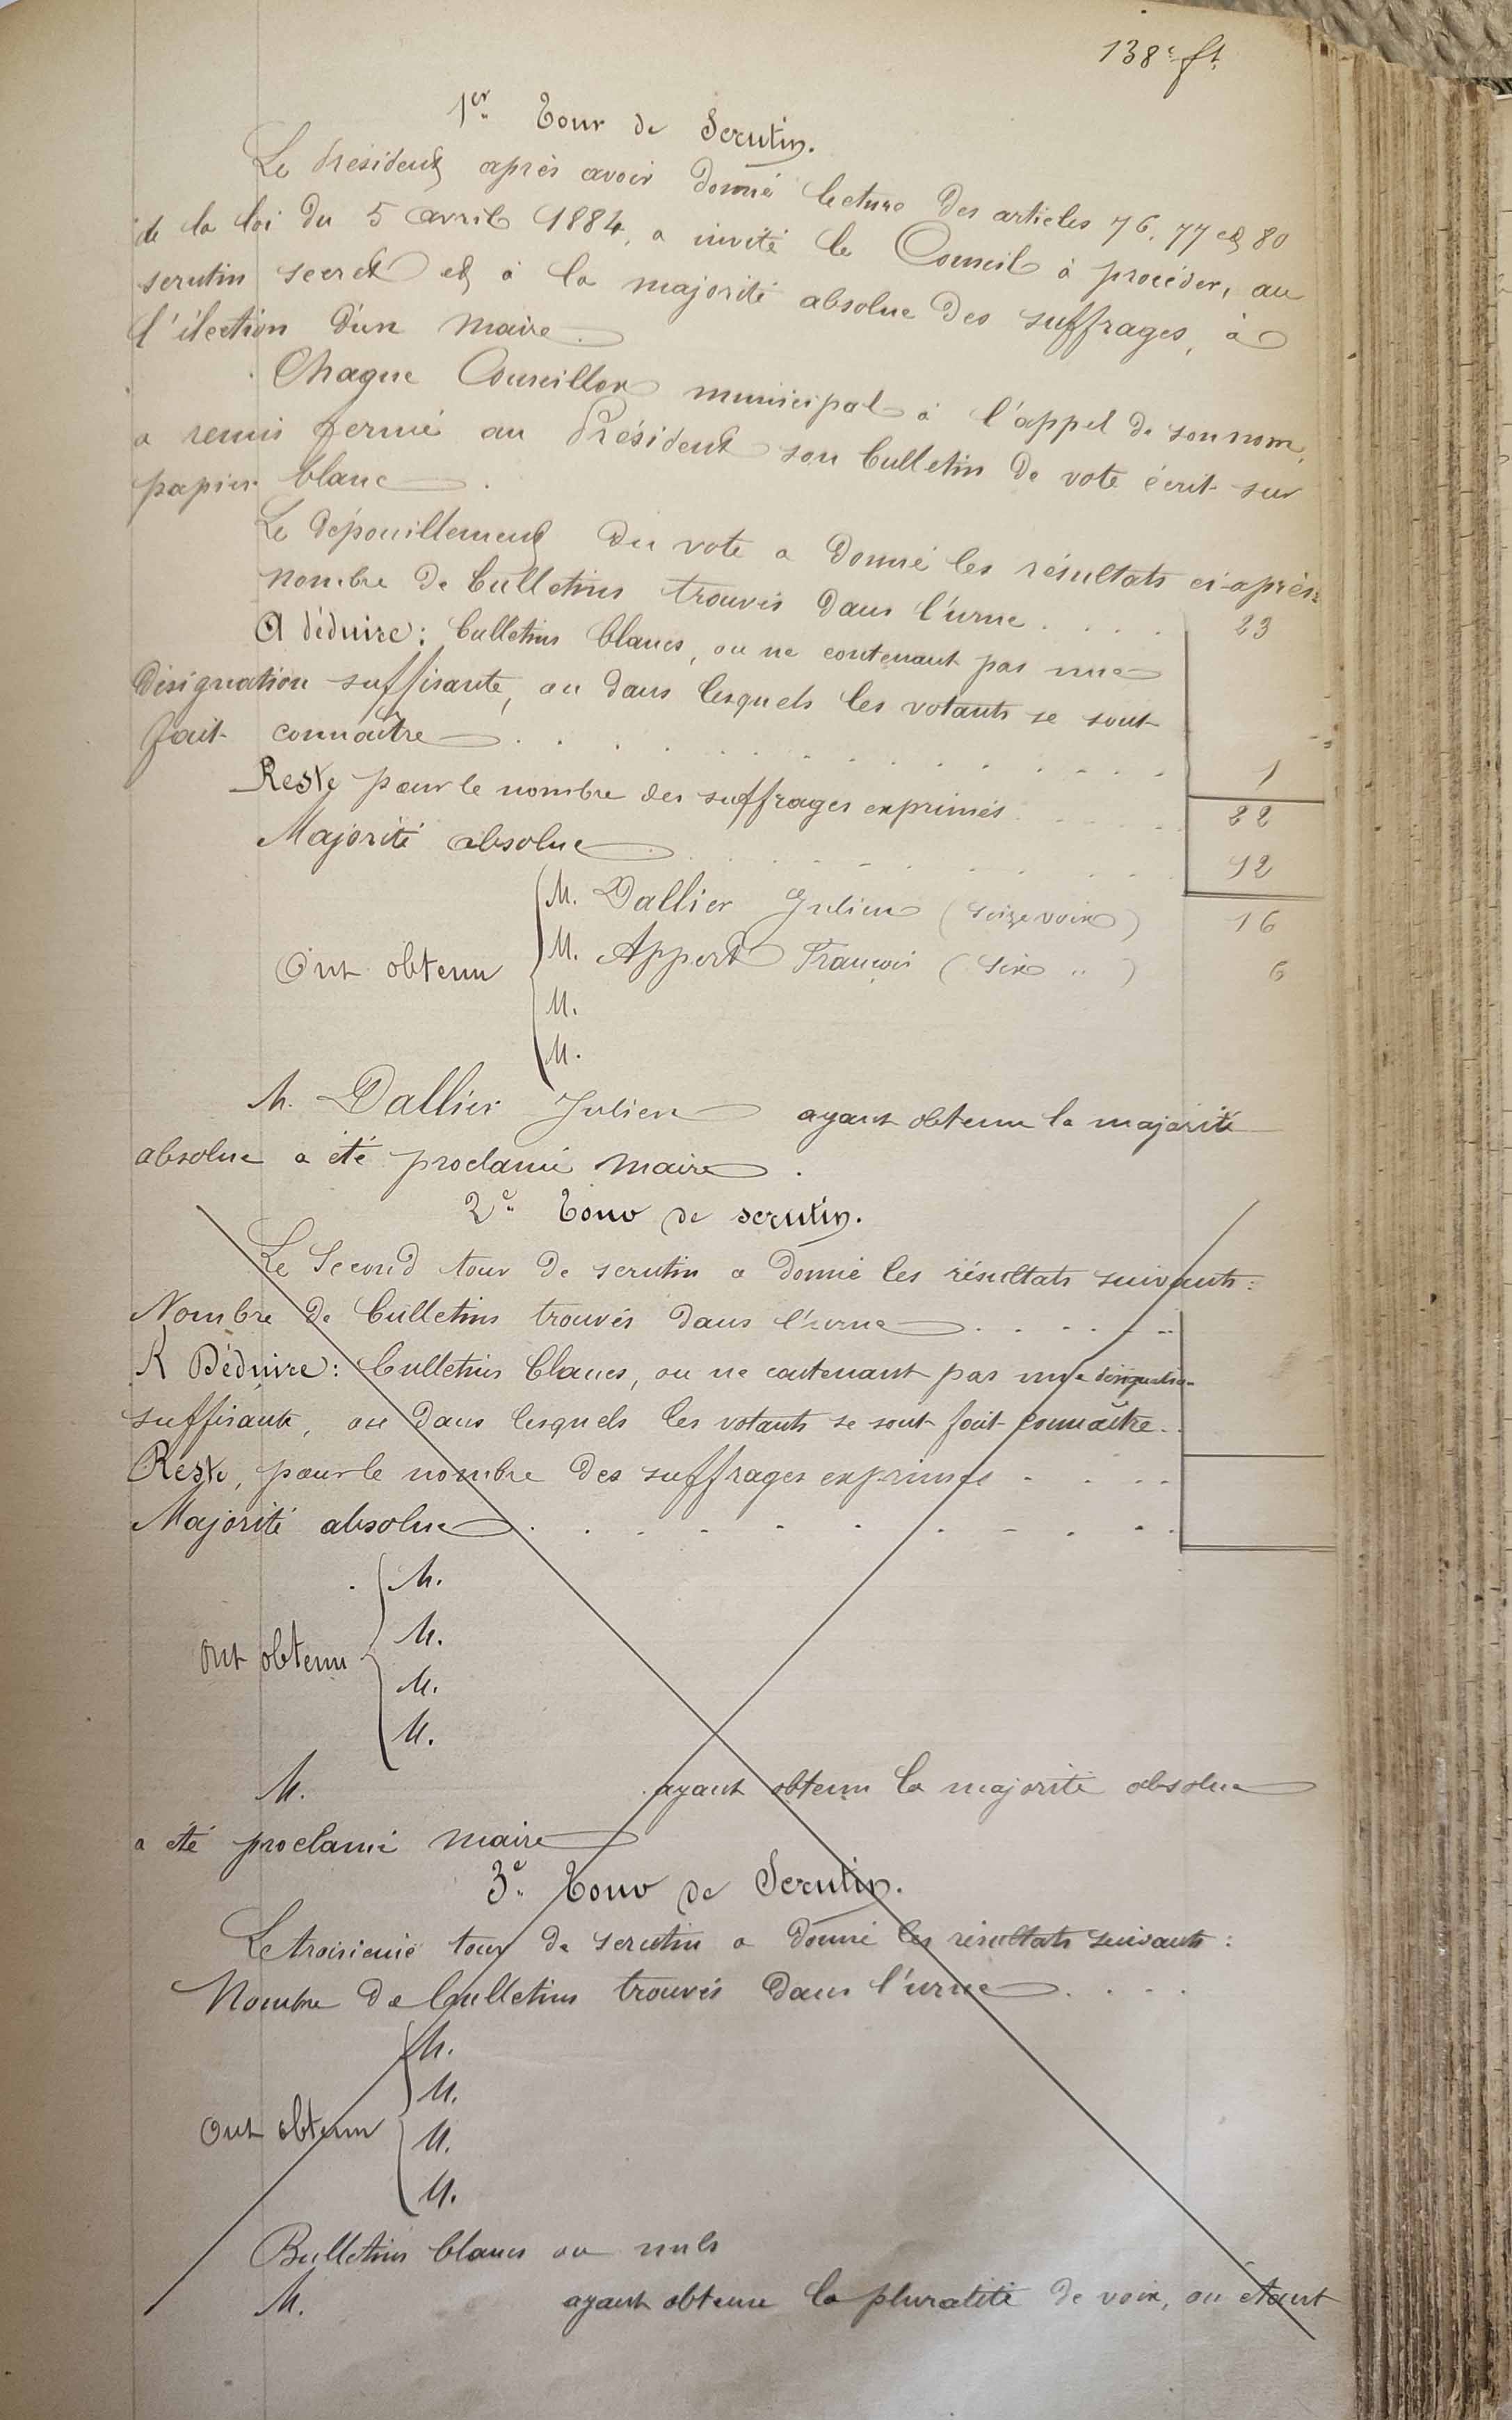 138e ft.
1er Tour de Scrutin.
Le Président après avoir donné lecture des articles 76, 77 et 80
de la loi du 5 avril 1884, a invité le Conseil à procéder, au
scrutin secret et à la majorité absolue des suffrages, à
l'élection d'un Maire.
Chaque Conseiller municipal à l'appel de son nom,
a remis fermé au Président son bulletin de vote écrit sur
papier blanc.
Le dépouillement du vote a donné les résultats ci-après:
Nombre de bulletins trouvés dans l'urne . . . . 23
A déduire: bulletins blancs, ou ne contenant pas une
désignation suffisante, ou dans lesquels les votants se sont
fait connaître . . . . . . . . . . . . 1
Reste pour le nombre des suffrages exprimés . . . . . 22
Majorité absolue . . . . . . . . . . 12
M. Dallier Julien (seize voix) 16
M. Appert François (six ") 6
Ont obtenu
M.
M.
M. Dallier Julien ayant obtenu la majorité
absolue a été proclamé Maire.
2e Tour de scrutin.
Le Second tour de scrutin a donné les résultats suivants:
Nombre de bulletins trouvés dans l'urne . . . . . .
A Déduire: bulletins blancs, ou ne contenant pas une désignation
suffisante, ou dans lesquels les votants se sont fait connaître . .
Reste, pour le nombre des suffrages exprimés . . . .
Majorité absolue . . . . . . . . . . .
M.
M.
Ont obtenu
M.
M.
M. ayant obtenu la majorité absolue
a été proclamé Maire
3e Tour de Scrutin.
Le troisième tour de scrutin a donné les résultats suivants:
Nombre de bulletins trouvés dans l'urne . . . .
M.
M.
Ont obtenu
M.
M.
Bulletins blancs ou nuls
M. ayant obtenu la pluralité de voix, ou étant